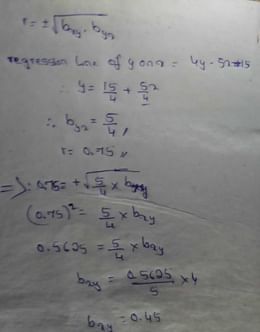 r = ±√bxy . byx
regression line of y on x = 4y - 5x = 15
∴ y = 15/4 + 5x/4
∴ byx = 5/4 ,
r = 0.75 //
=> ∴ 0.75 = +√5/4 × bxy
(0.75)² = 5/4 × bxy
0.5625 = 5/4 × bxy
bxy = 0.5625/5 × 4
bxy = 0.45